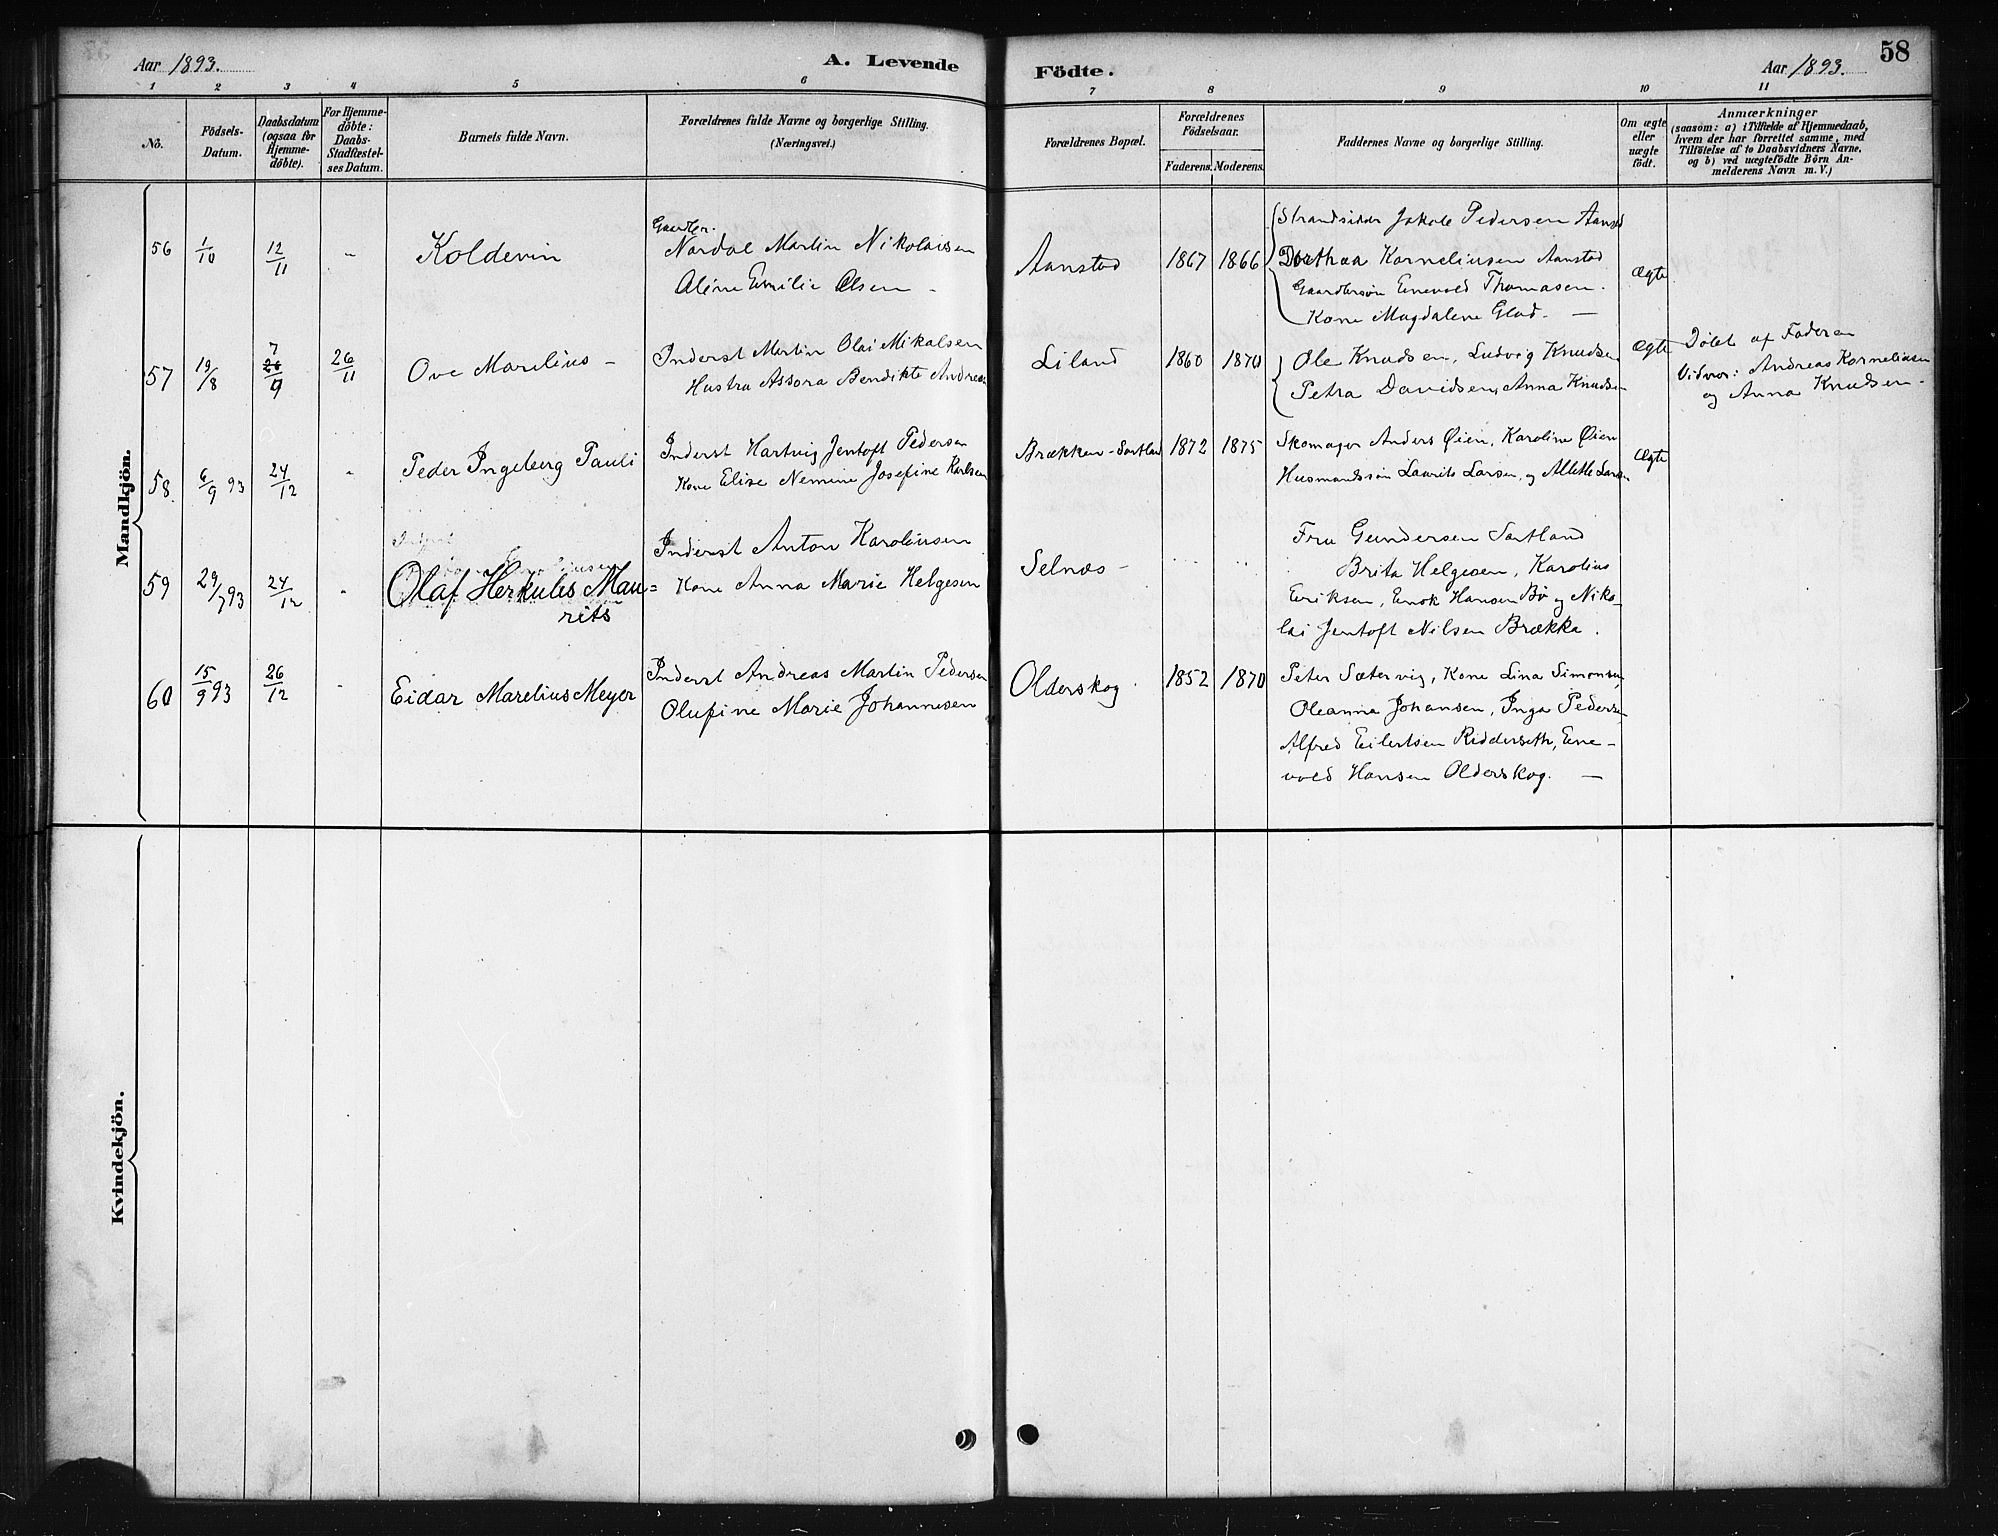 Aar 1893.
A. Levende
Födte.
Aar 1893.
58
1 2 3 4 5 6 7 8 9 10 11
No.
Födsels-
Datum.
Daabsdatum
(ogsaa for
Hjemme-
döbte).
For Hjemme-
döbte:
Daabs-
Stadfæstel-
ses Datum.
Barnets fulde Navn.
Forældrenes fulde Navne og borgerlige Stilling.
(Næringsvei.)
Forældrenes Bopæl.
Forældrenes
Födselsaar.
Faderens. Moderens.
Faddernes Navne og borgerlige Stilling.
Om ægte
eller
uægte
födt.
Anmærkninger
(saasom: a) i Tilfælde af Hjemmedaab,
hvem der har forrettet samme, med
Tilföielse af to Daabsvidners Navne,
og b) ved uægtefödte Börn An-
melderens Navn m. V.)
Mandkjön.
56
1/10
12/11
"
Koldevin
Gaardbr.
Nordal Martin Nikolaisen
Aline Emilie Olsen -
Aanstad
1867
1866
Strandsidder Jakob Pedersen Aanstad
Dorthea Korneliusen Aanstad
Gaardbrsøn Enevold Thomasen.
Kone Magdalene Glad. —
Ægte
57
19/8
7
26/9
26/11
Ove Marelius -
Inderst Martin Olai Mikalsen
Hustru Assora Bendikte Andreas
Liland
1860
1870
Ole Knudsen, Ludvig Knudsen
Petra Davidsen, Anna Knudsen
Ægte
Døbt af Faderen
Vidner: Andreas Korneliusen
og Anna Knudsen -
58
6/9 93
24/12
"
Peder Ingeberg Pauli
Inderst Hartvig Jentoft Pedersen
Kone Elise Nemine Josefine Karlsen
Brækken - Sortland
1872
1875
Skomager Anders Øien, Karoline Øien
Husmandssøn Laurits Larsen, og Allette Larsen
Ægte
59
29/7 93
24/12
"
Olaf Herkules Mau=
rits
Inderst Anton Karoliusen
Kone Anna Marie Helgesen
Selnæs -
Fru Gundersen Sortland
Brita Helgesen, Karolius
Eriksen, Enok Hansen Bø og Niko-
lai Jentoft Nilsen Brækka.
60
15/9 93
26/12
"
Eidar Marelius Meyer
Inderst Andreas Martin Pedersen
Olufine Marie Johannesen
Olderskog.
1852
1870
Peter Sætervig, Kone Lina Simonsen,
Oleanna Johansen, Inga Pedersen
Alfred Eilertsen Ridderseth, Ene-
vold Hansen Olderskog. —
Kvindekjön.